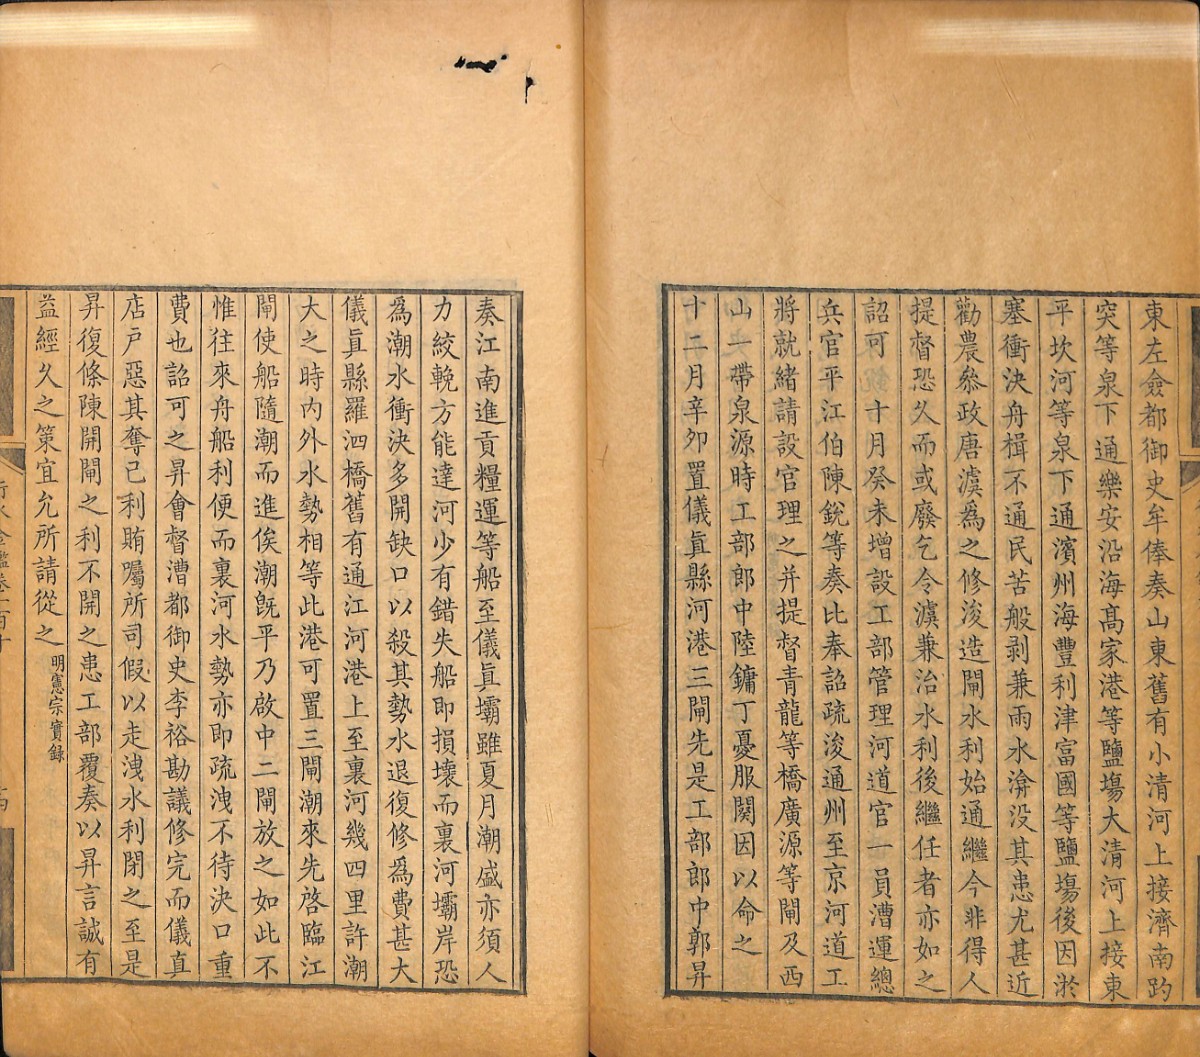 東左僉都御史牟俸奏山東舊有小清河上接濟南趵
突等泉下通樂安沿海高家港等鹽塲大清河上接東
平坎河等泉下通濱州海豐利津富國等鹽塲後因淤
塞衝決舟楫不通民苦般剥兼雨水渰没其患尤甚近
勸農叅政唐瀇爲之修浚造閘水利始通繼今非得人
提督恐久而或廢乞令瀇兼治水利後繼任者亦如之
詔可十月癸未增設工部管理河道官一員漕運總
兵官平江伯陳銳等奏比奉詔疏浚通州至京河道工
將就緒請設官理之并提督青龍等橋廣源等閘及西
山一帶泉源時工部郎中陸鏞丁憂服闋因以命之
十二月辛卯置儀眞縣河港三閘先是工部郎中郭昇
奏江南進貢糧運等船至儀眞壩雖夏月潮盛亦須人
力絞輓方能達河少有錯失船即損壞而裏河壩岸恐
爲潮水衝決多開缺口以殺其勢水退復修爲費甚大
儀眞縣羅泗橋舊有通江河港上至裏河幾四里許潮
大之時内外水勢相等此港可置三閘潮來先啓臨江
閘使船隨潮而進俟潮旣平乃啟中二閘放之如此不
惟往來舟船利便而裏河水勢亦即疏洩不待決口重
費也詔可之昇會督漕都御史李裕勘議修完而儀真
店戸惡其奪己利賄囑所司假以走洩水利閉之至是
昇復條陳開閘之利不開之患工部覆奏以昇言誠有
益經久之策宜允所請從之明憲宗實録